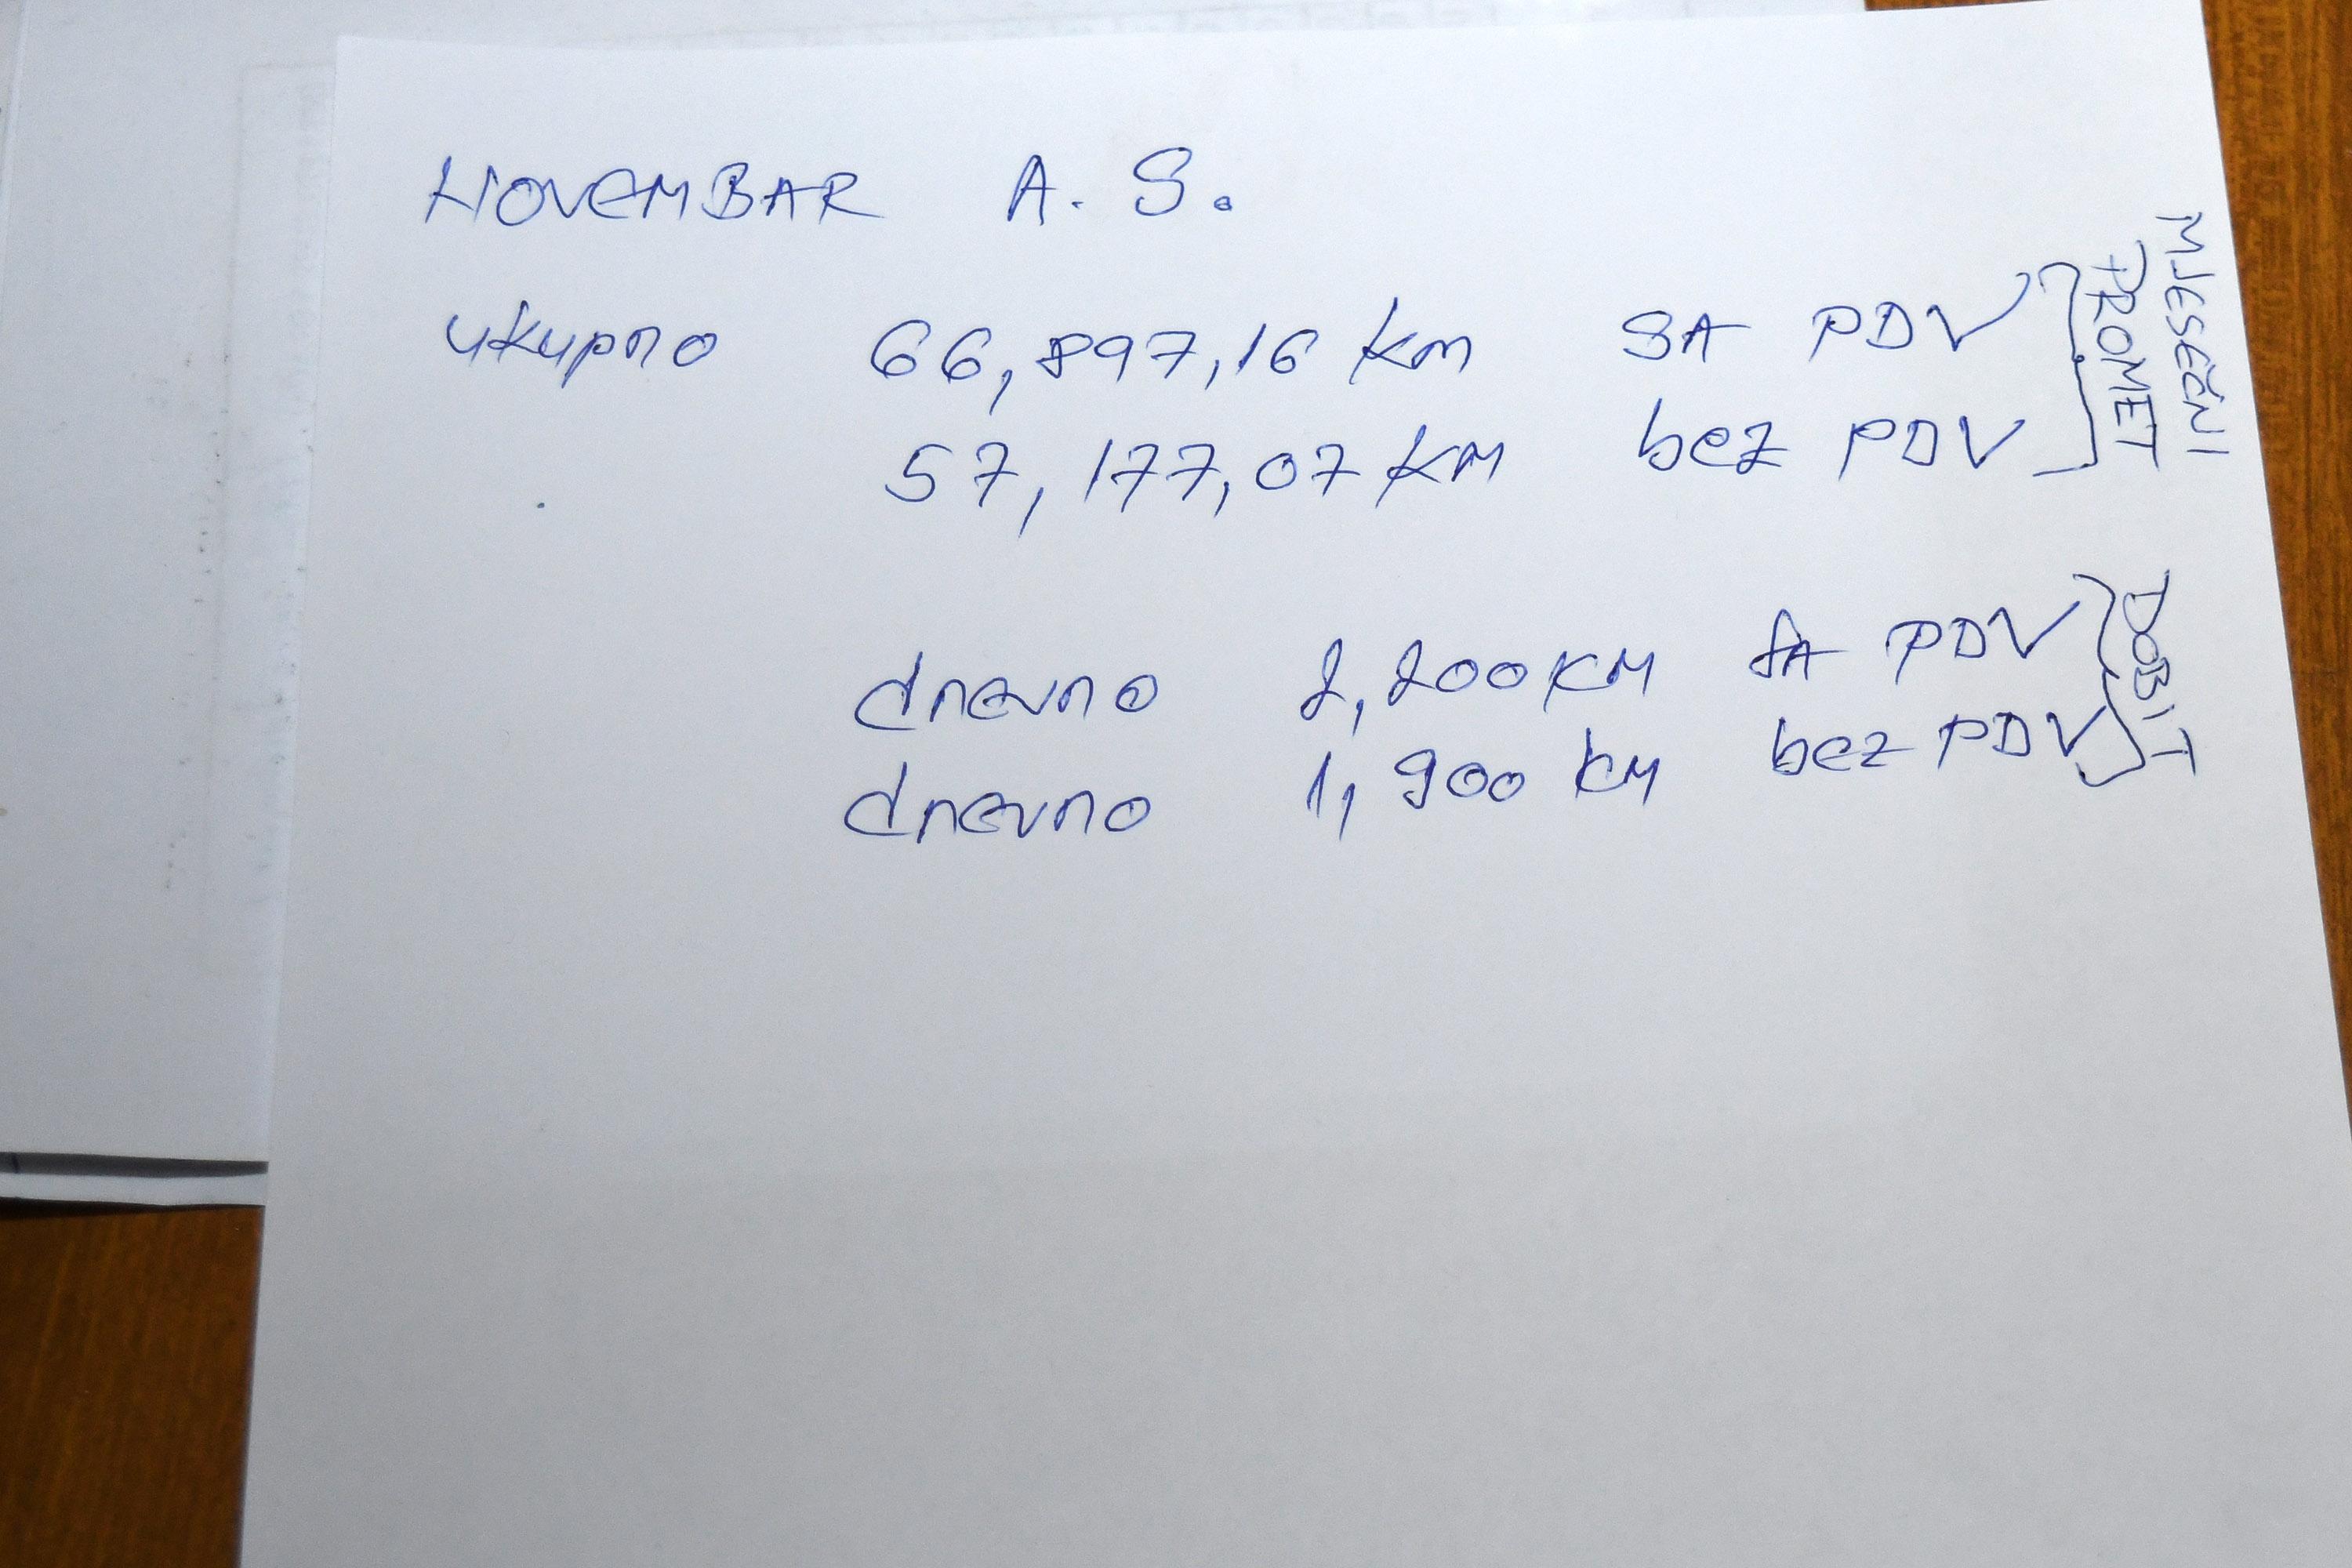 NOVEMBAR A. S.
ukupno 66,897,16 KM SA PDV
57,177,07 KM bez PDV
MJESEČNI
PROMET
dnevno 2,200 KM SA PDV
dnevno 1,900 KM bez PDV
DOBIT